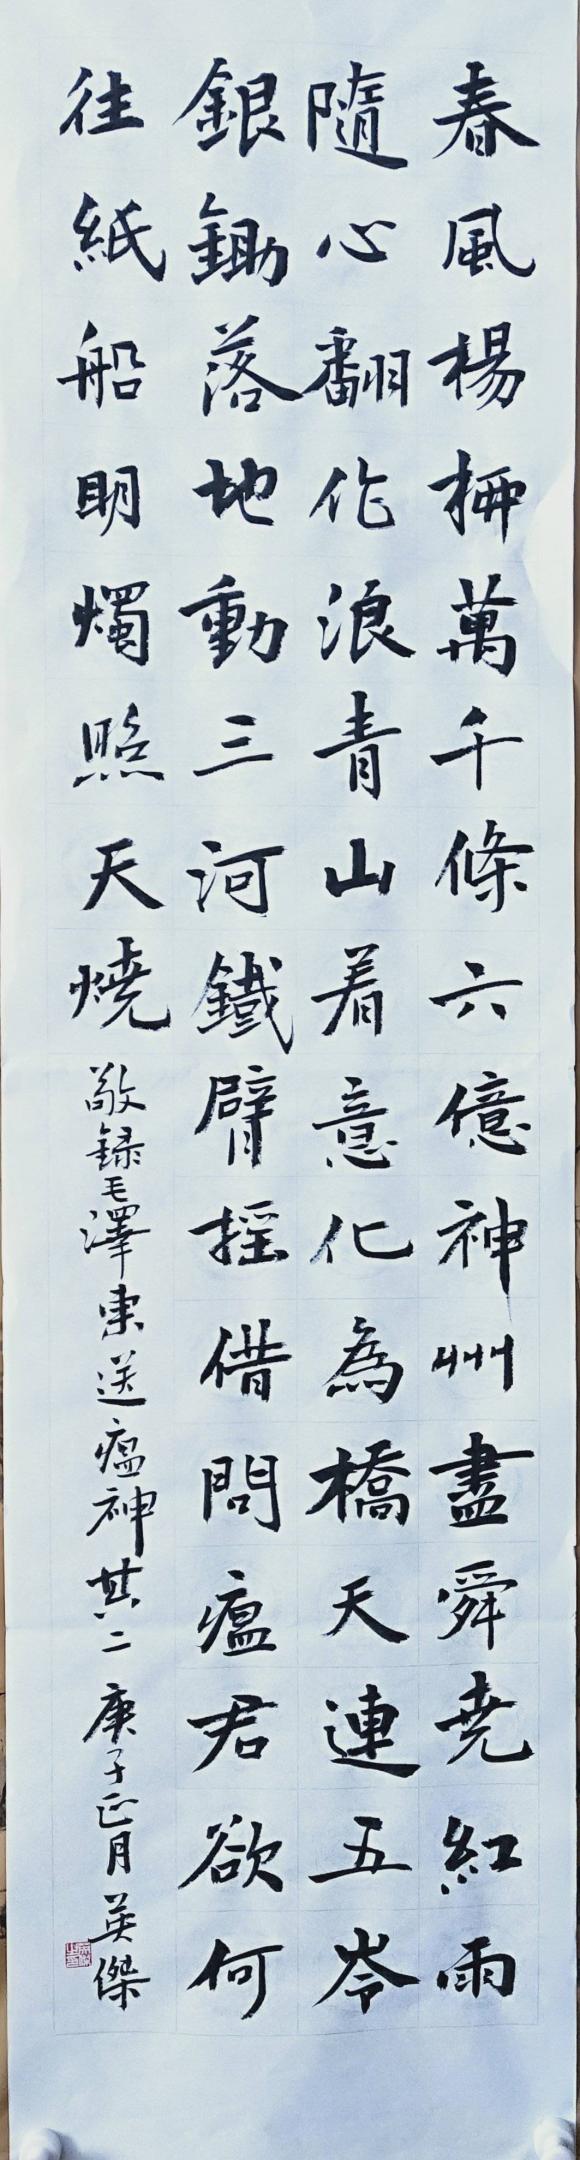 春風楊柳萬千條六億神州盡舜尭紅雨
隨心翻作浪青山着意化為橋天連五岑
銀鋤落地動三河鐵臂摇借問瘟君欲何
往紙船明燭照天燒
敬録毛澤東送瘟神其二 庚子正月 英傑